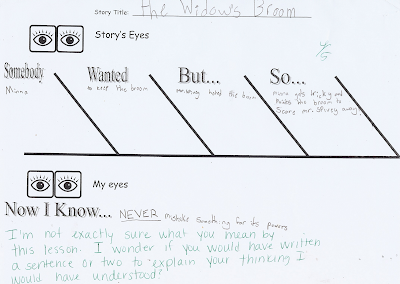 Story Title: the Widows Broom
Story's Eyes
4/5
Somebody Wanted But... So...
Minna to keep the broom mr. spivey hated the broom minna gets tricky and
paints the broom to
scare mr. spivey away
My eyes
Now I Know... NEVER mistake something for its powers
I'm not exactly sure what you mean by
this lesson. I wonder if you would have written
a sentence or two to explain your thinking I
would have understood?